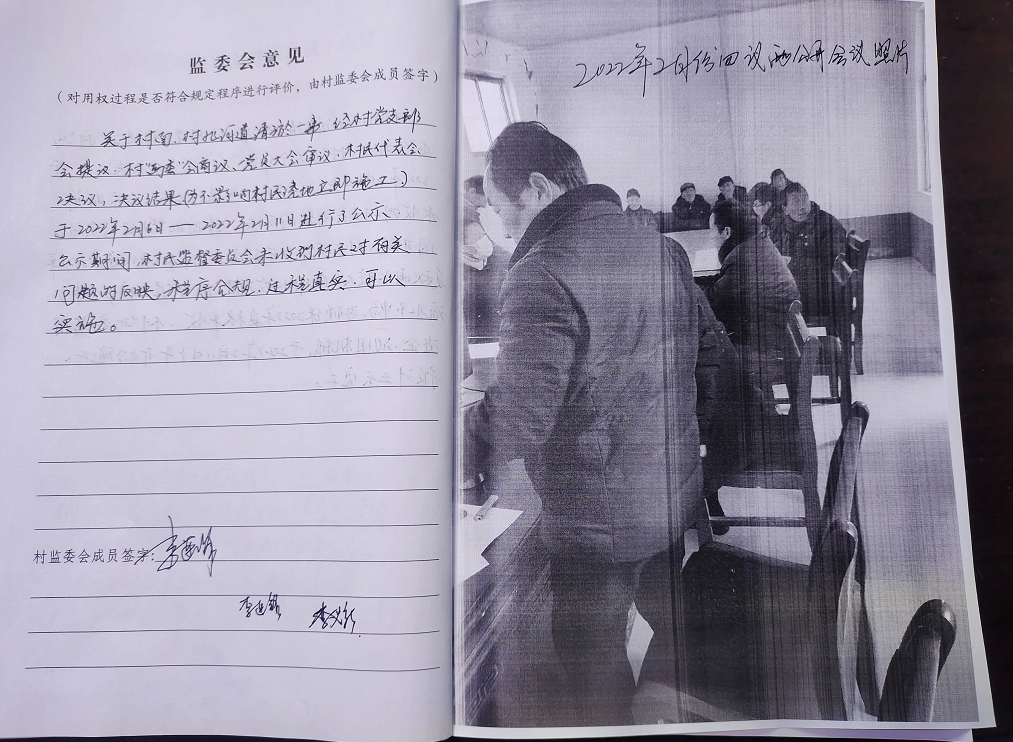 监委会意见
(对用权过程是否符合规定程序进行评价，由村监委会成员签字)
关于村南、村北河道清淤一事，经村党支部
会提议、村"两委"会商议、党员大会审议、村民代表会
决议，决议结果(为不影响村民浇地立即施工)
于2022年2月6日——2022年2月11日进行了公示
公示期间，村民监督委员会未收到村民对有关
问题的反映，程序合规，过程真实，可以
实施。
村监委会成员签字:
2022年2月份四议两公开会议照片